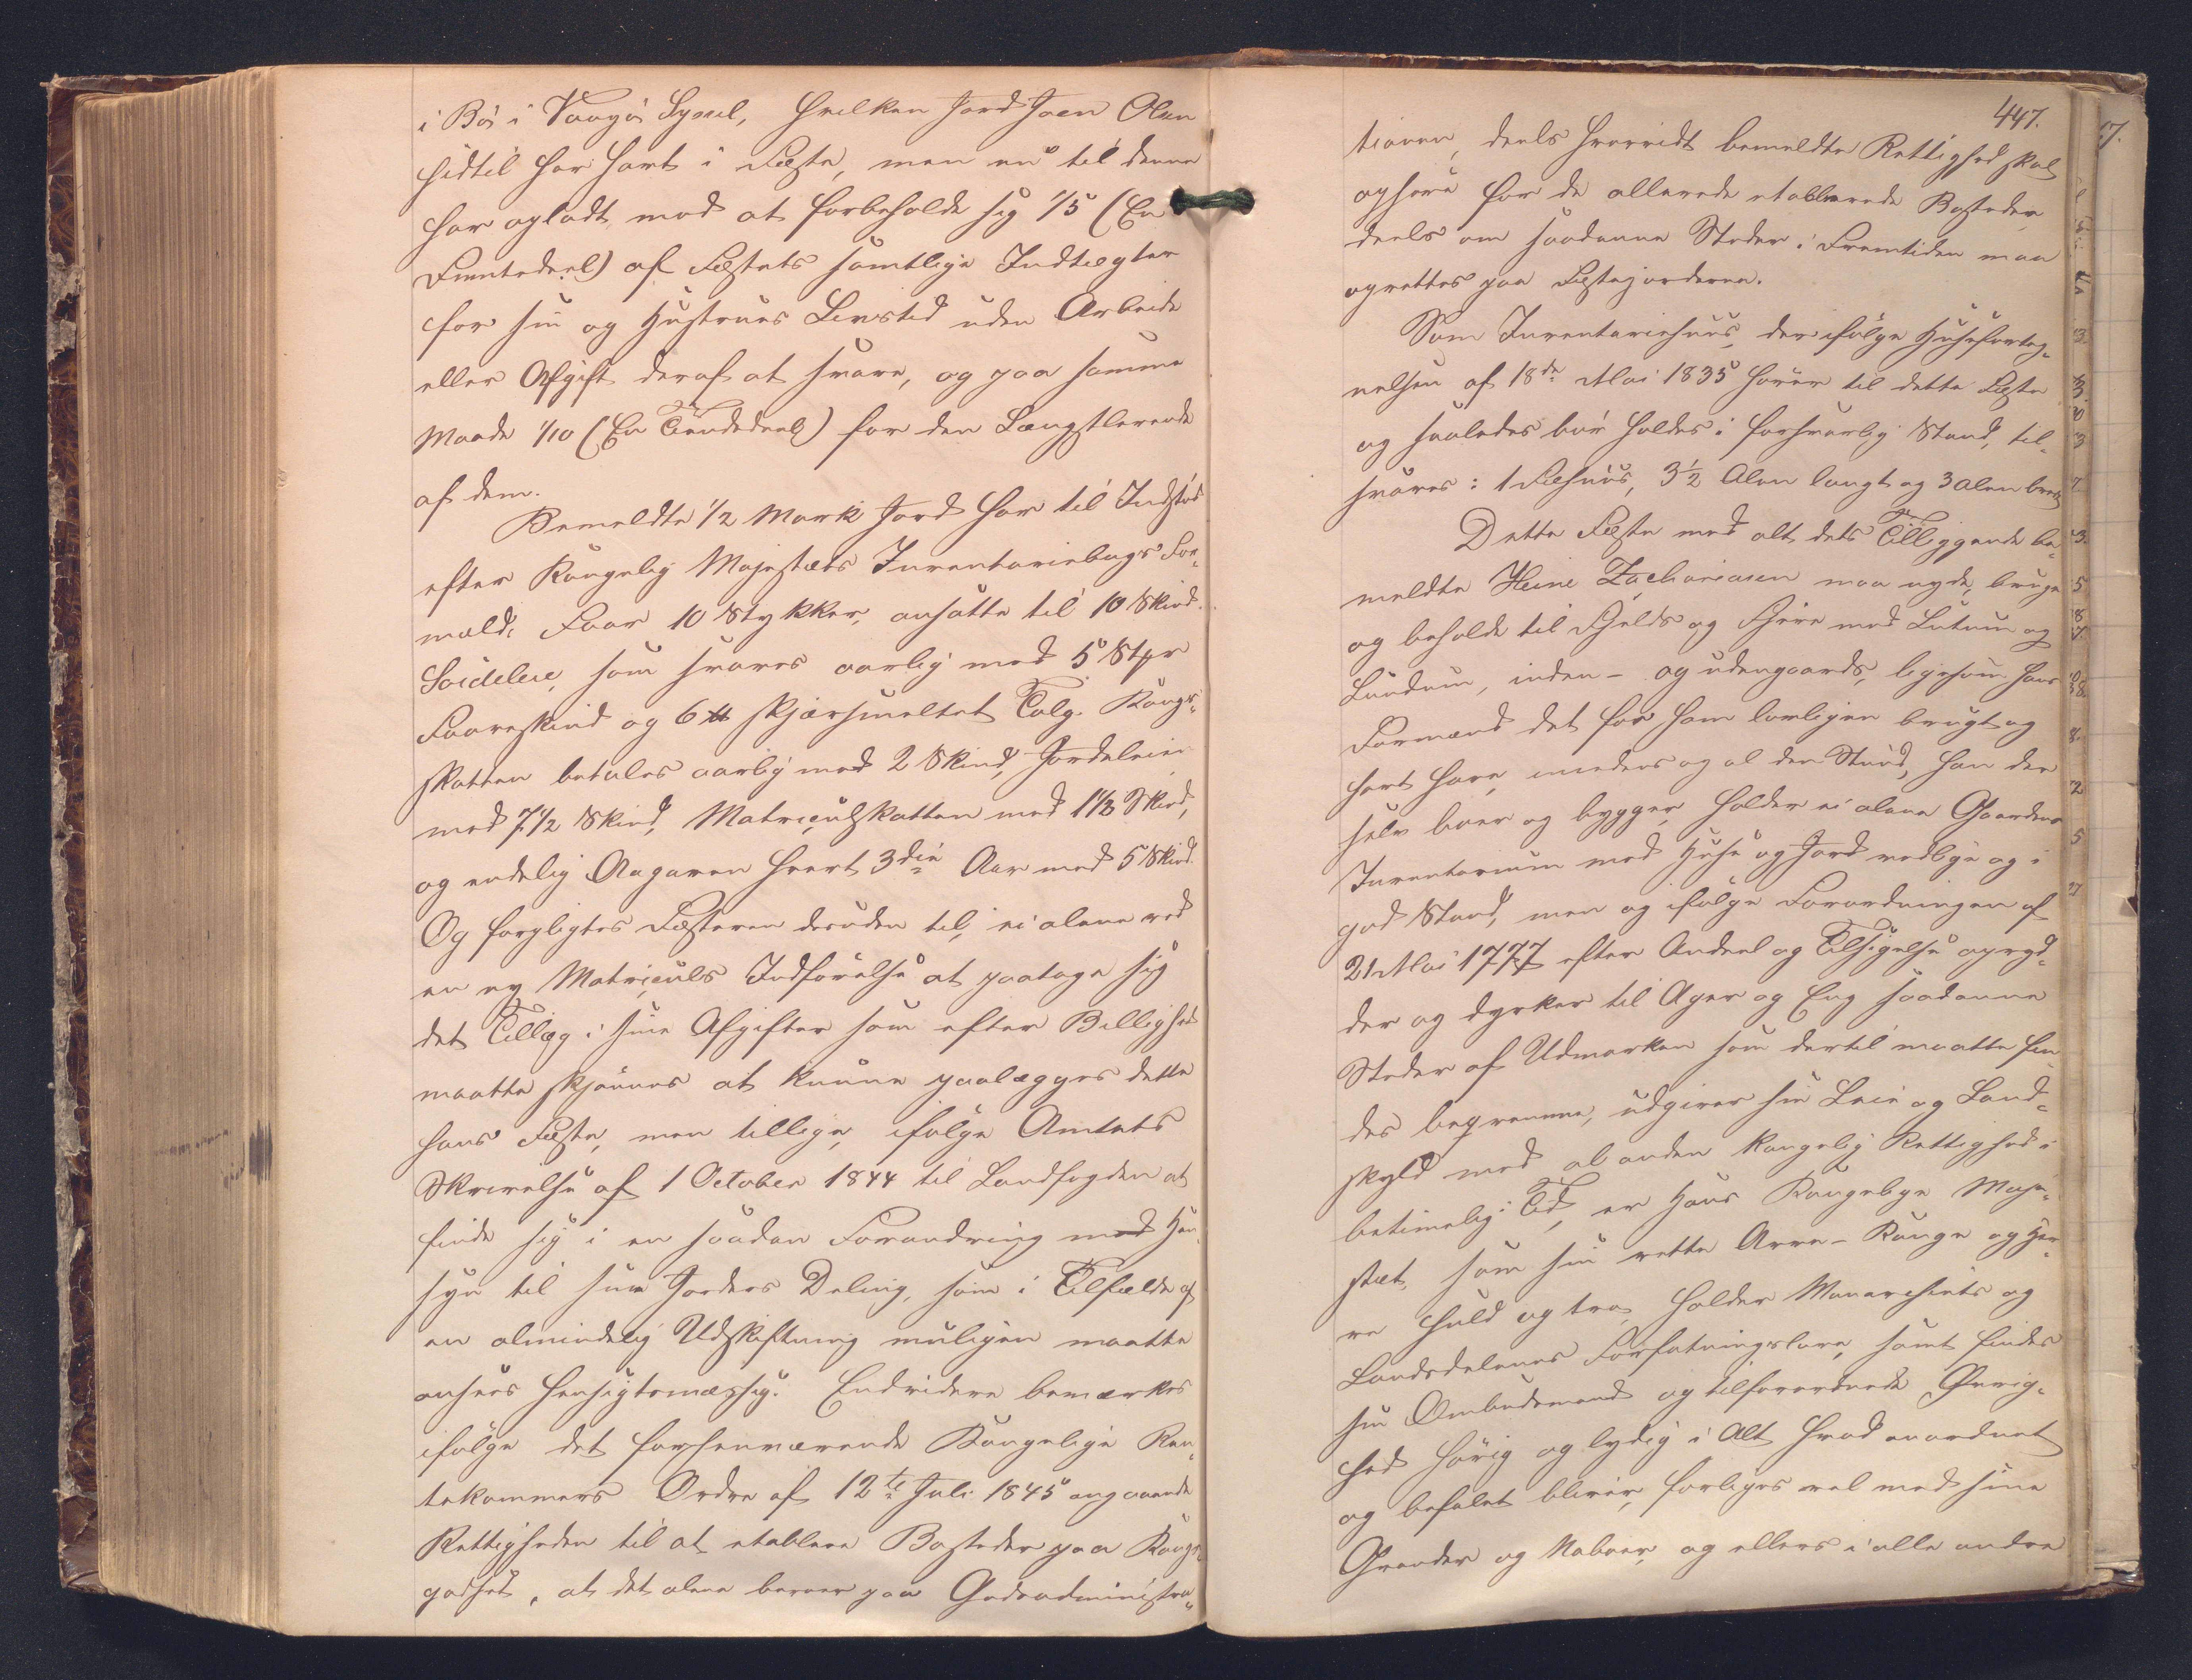 i Bø i Vaagø Syssel, hvilken Jord Joen Olsen
hidtil har havt i Fæste, men nu til denne
har opladt mod at forbeholde sig 1/5 (En
Femtedeel) af Fæstets samtlige Indtægter
for sin og Hustrues Levetid uden Arbeide
eller Afgift deraf at svare, og paa samme
Maade 1/10 (En Tiendedeel) for den Længstlevende
af dem.
Bemeldte 1/2 Mark Jord har til Indstød
efter Kongelig Majestæts Inventariebogs For-
mæld: Faar 10 Stykker, ansatte til 10 Skind
Søideleie, som svares aarlig med 5 Stkr
Faareskind og 6 ℔ skjærsmeltet Talg. Kongs-
skatten betales aarlig med 2 Skind, Jordeleien
med 7 1/2 Skind, Matriculskatten med 1 1/3 Skind,
og endelig Aagaven hvert 3die Aar med 5 Skind.
Og forpligtes Fæsteren desuden til, ei alene ved
en ny Matriculs Indførelse at paatage sig
det Tillæg i sine Afgifter som efter Billighed
maatte skjønnes at kunne paalægges dette
hans Fæste, men tillige, ifølge Amtets
Skrivelse af 1 October 1844 til Landfogden at
finde sig i en saadan Forandring med Hen-
syn til sine Jorders Deling, som i Tilfælde af
en almindelig Udskiftning muligen maatte
ansees hensigtsmæssig. Endvidere bemærkes
ifølge det forhenværende Kongelige Ren-
tekammers Ordre af 12te Juli 1845 angaaende
Rettigheden til at etablere Bosteder paa Kongs-
godset, at det alene beroer paa Godsadministra-
447.
tionen, deels hvorvidt bemeldte Rettighed skal
ophøre for de allerede etablerede Bosteder,
deels om saadanne Steder i Fremtiden maa
oprettes paa Fæstejorderne.
Som Inventariehuus, der ifølge Huseforteg-
nelsen af 18de Mai 1835 hører til dette Fæste
og saaledes bør holdes i forsvarlig Stand, til-
svares: 1 Fæhuus, 3 1/2 Alen langt og 3 Alen bredt
Dette Fæste med alt dets Tilliggende be-
meldte Heine Zachariasen maa nyde, bruge
og beholde til Fjelds og Fjære med Lutum og
Lundum, inden- og udengaards, ligesom hans
Formænd det før ham lovligen brugt og
havt have, imedens og al den Stund, han der
selv boer og bygger, holder ei alene Gaardens
Inventarium med Huse og Jord vedlige og i
god Stand, men og ifølge Forordningen af
21 Mai 1777 efter Andeel og Tilsigelse opryd-
der og dyrker til Ager og Eng saadanne
Steder af Udmarken som dertil maatte fin-
des beqvemme, udgiver sin Leie og Land-
skyld med al anden kongelig Rettighed i
betimelig Tid, er Hans Kongelige Maje-
stæt, som sin rette Arve-Konge og Her-
re huld og tro, holder Monarchiets og
Landsdelenes Forfatningslove, samt findes
sin Ombudsmand og tilforordnede Øvrig-
hed hørig og lydig i Alt hvad anordnet
og befalet bliver, forliges vel med sine
Grander og Naboer, og ellers i alle andre